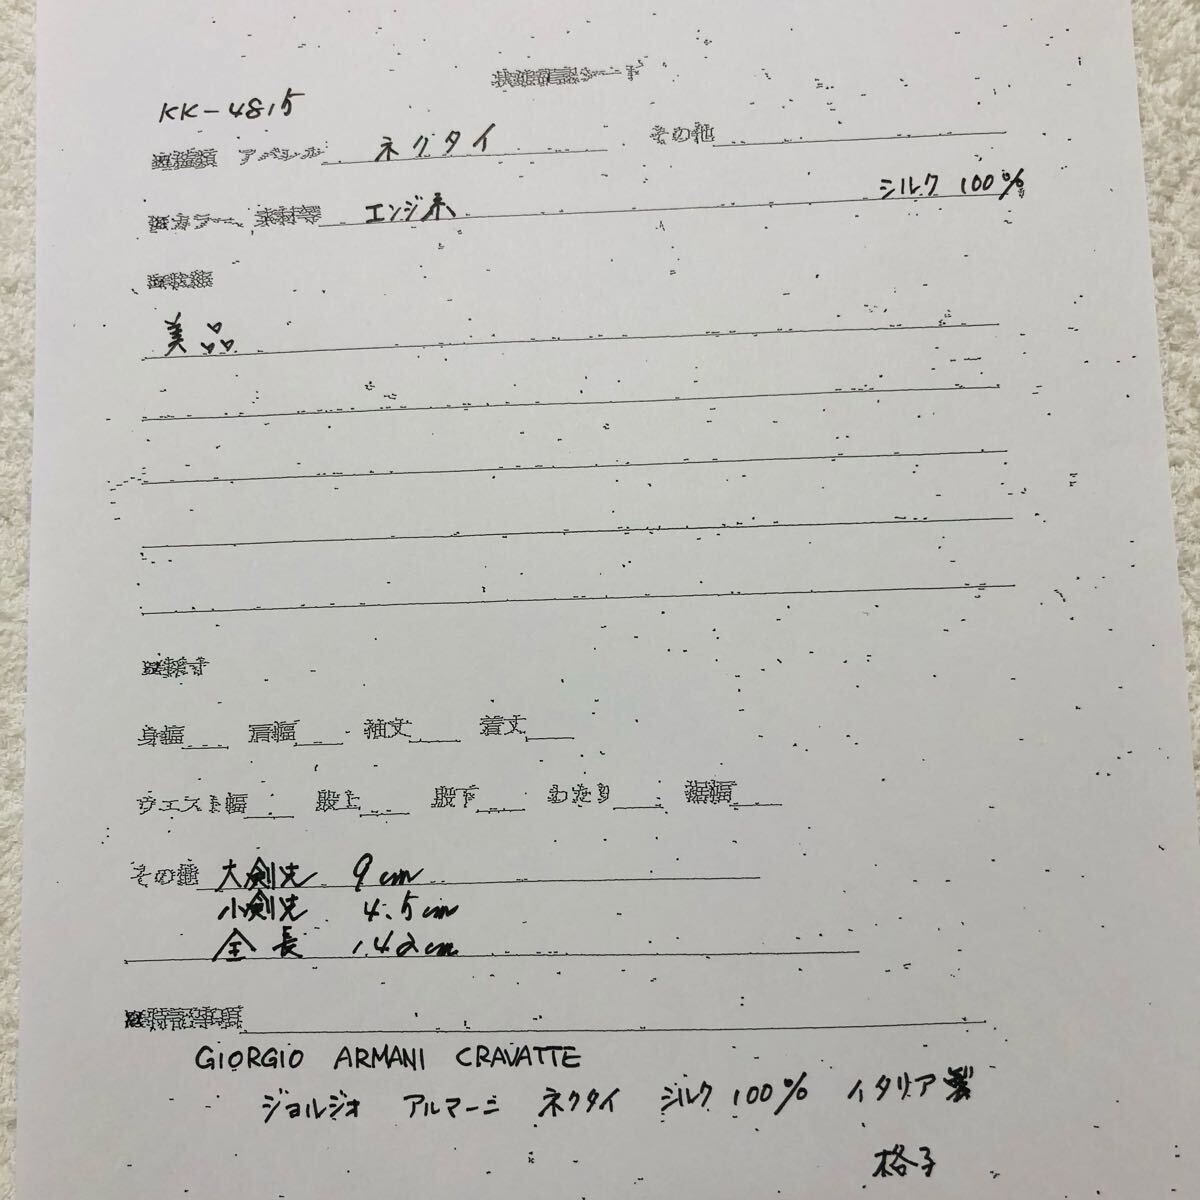 状態確認シート
KK-4815
アパレル ネクタイ その他
カラー、素材等 エンジ系 シルク 100%
美品
採寸
身幅 肩幅 袖丈 着丈
ウエスト幅 股上 股下 わたり 裾幅
その他 大剣先 9cm
小剣先 4.5cm
全長 142cm
特記事項
GIORGIO ARMANI CRAVATTE
ジョルジオ アルマーニ ネクタイ シルク 100% イタリア製
格子